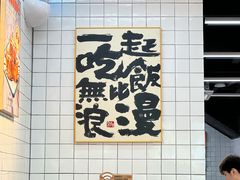 一起
吃飯
無比
浪漫